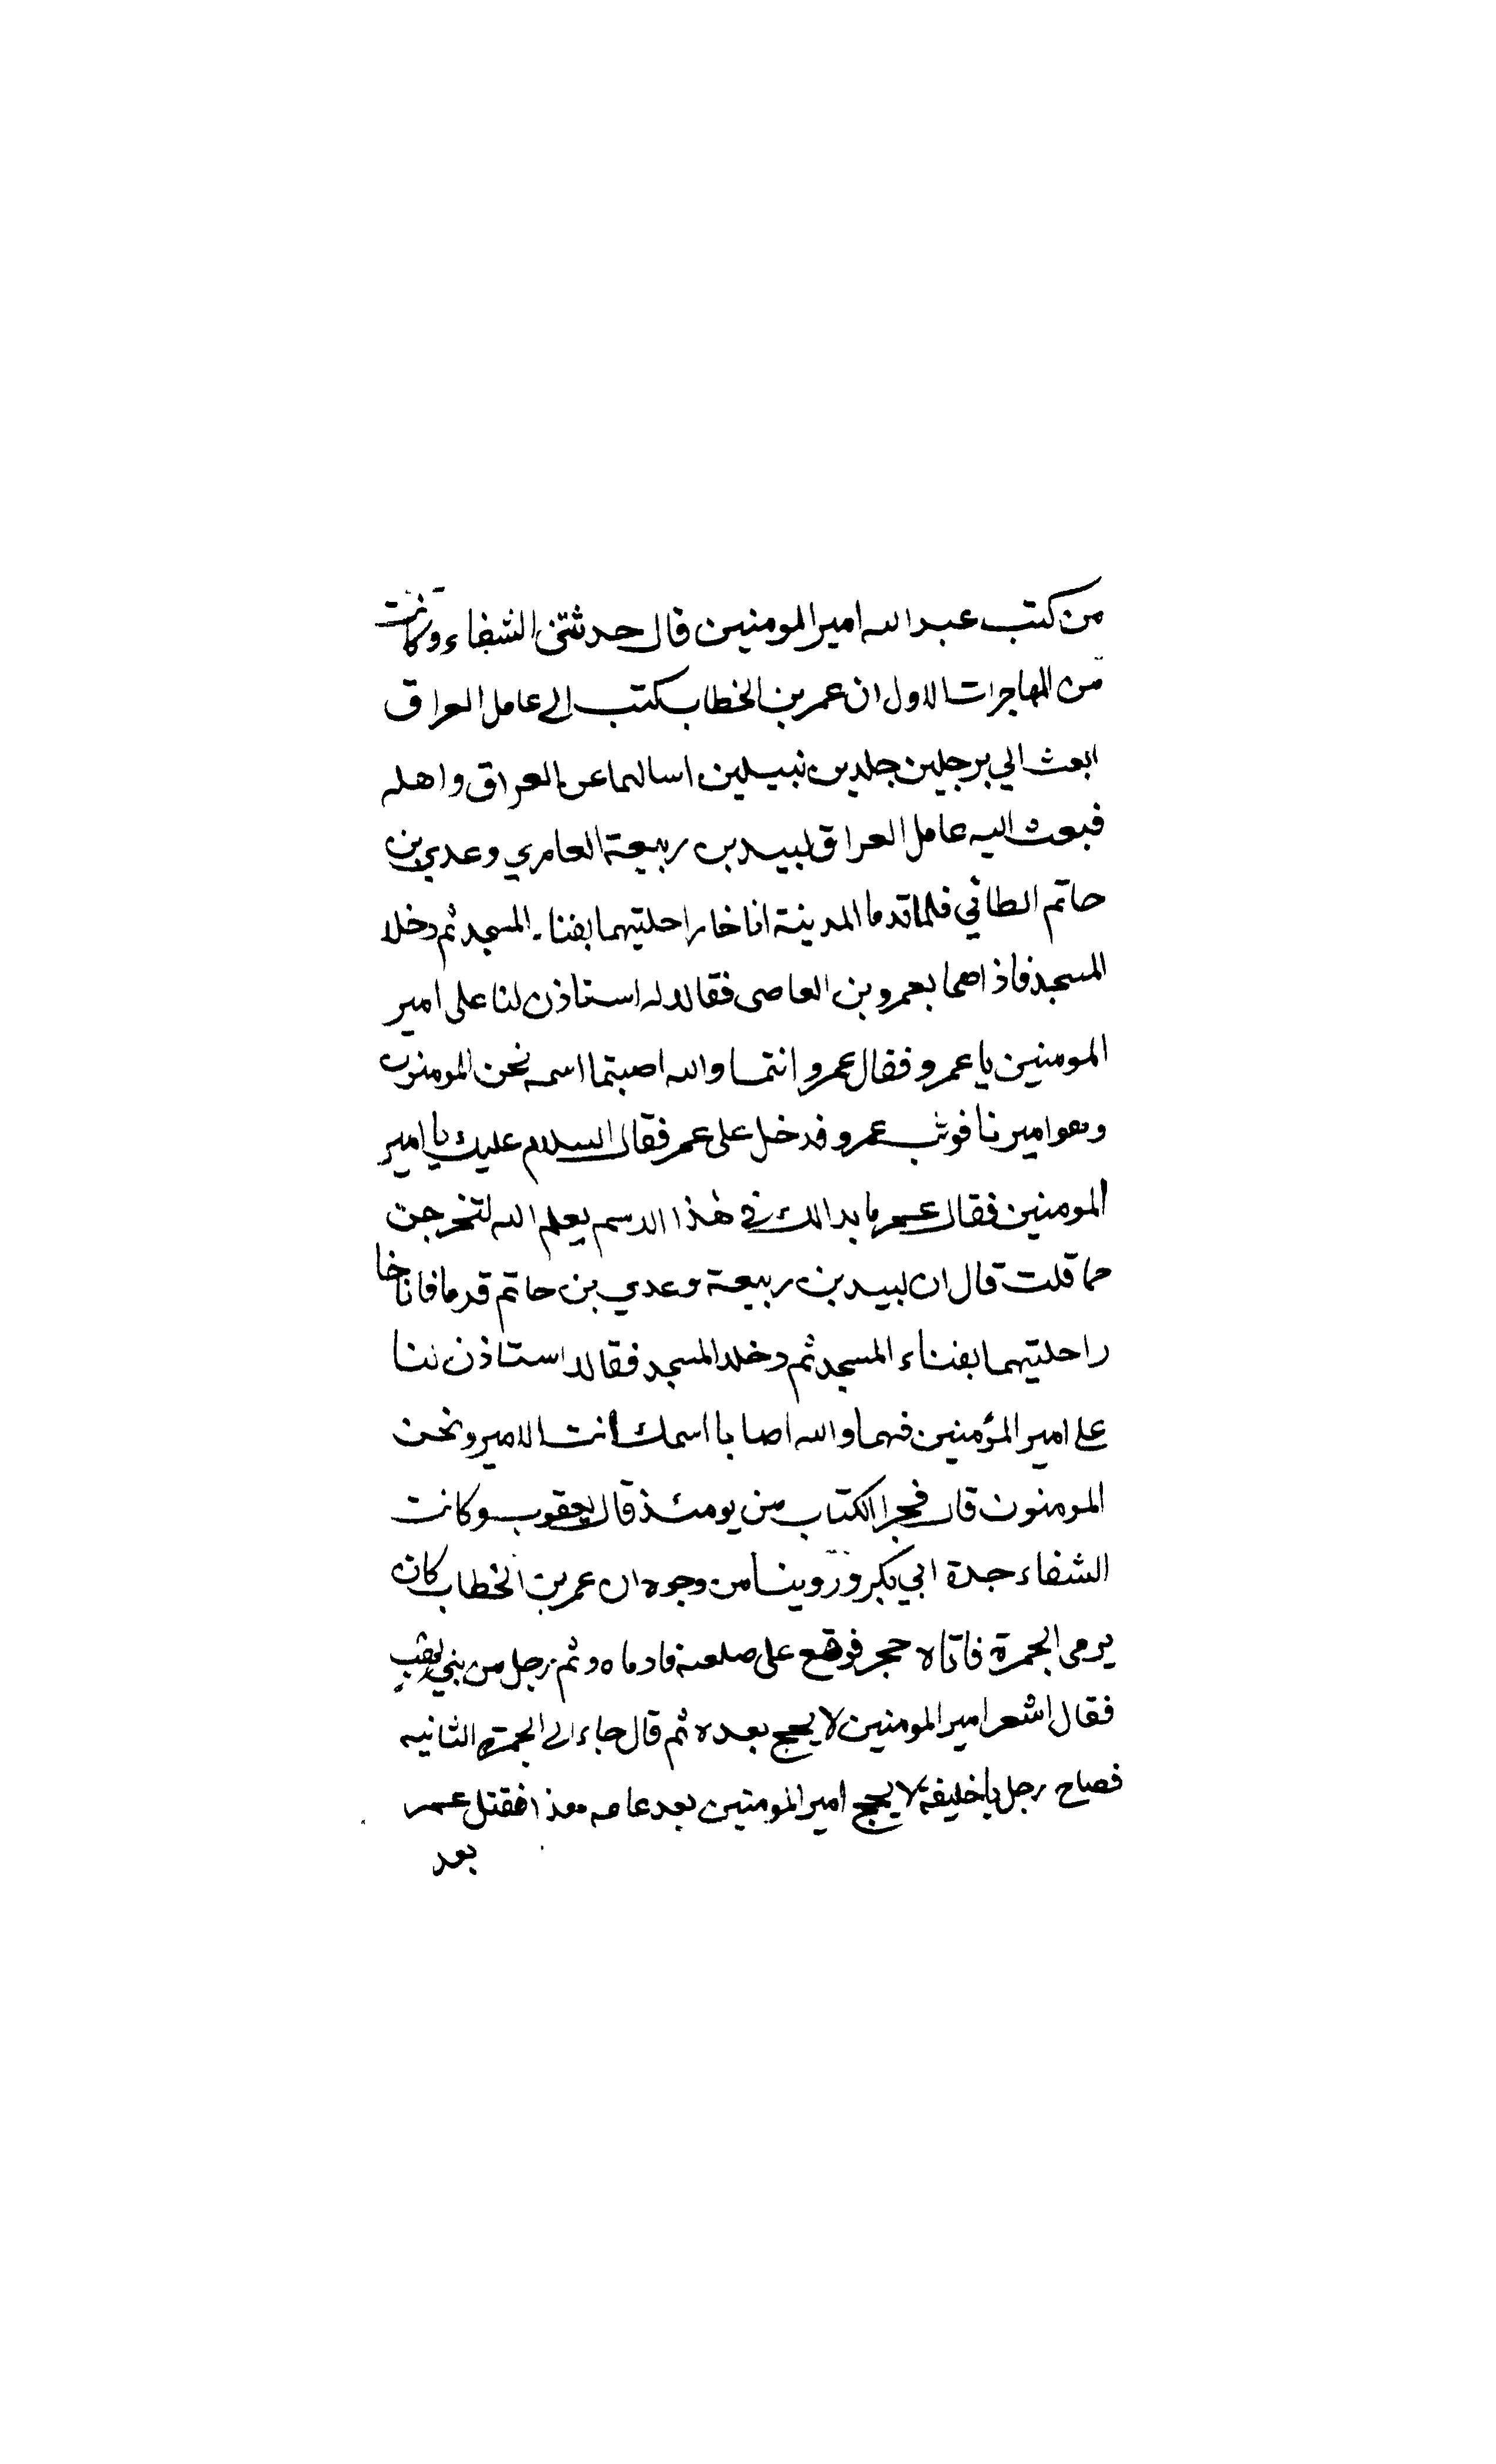 من كتب عبد الله امير المومنين قال حدثتني الشفاء وكانت
من المهاجرات الاول ان عمر بن الخطاب كتب الى عامل العراق
ابعث الي برجلين جلدين نبيلين اسالهما عن العراق واهله
فبعث اليه عامل العراق لبيد بن ربيعة العامري وعدي بن
حاتم الطائي فلما قدما المدينة اناخا راحلتيهما بفناء المسجد ثم دخلا
المسجد فاذا هما بعمرو بن العاصى فقالا له استاذن لنا على امير
المومنين يا عمرو فقال عمرو انتما والله اصبتما اسمه نحن المومنون
وهو اميرنا فوثب عمرو فدخل على عمر فقال السلام عليك يا امير
المومنين فقال عمر ما بدا لك في هذا الاسم يعلم الله لتخرجن
مما قلت قال ان لبيد بن ربيعة وعدي بن حاتم قدما فاناخا
راحلتيهما بفناء المسجد ثم دخلا المسجد فقالا استاذن لنا
على امير المؤمنين فهما والله اصابا اسمك انت الامير ونحن
المومنون قال فجرا الكتاب من يومئذ قال يعقوب وكانت
الشفاء جدة ابي بكر وروينا من وجوه ان عمر بن الخطاب كان
يرمى الجمرة فاتاه حجر فوقع على صلعته فادماه وثم رجل من بني لهب
فقال اشعر امير المومنين لا يحج بعده ثم قال جاء الى الجمرة الثانيه
فصاح رجل يا خليفة لا يحج امير المومنين بعد عامه هذا فقتل عمر
بعد